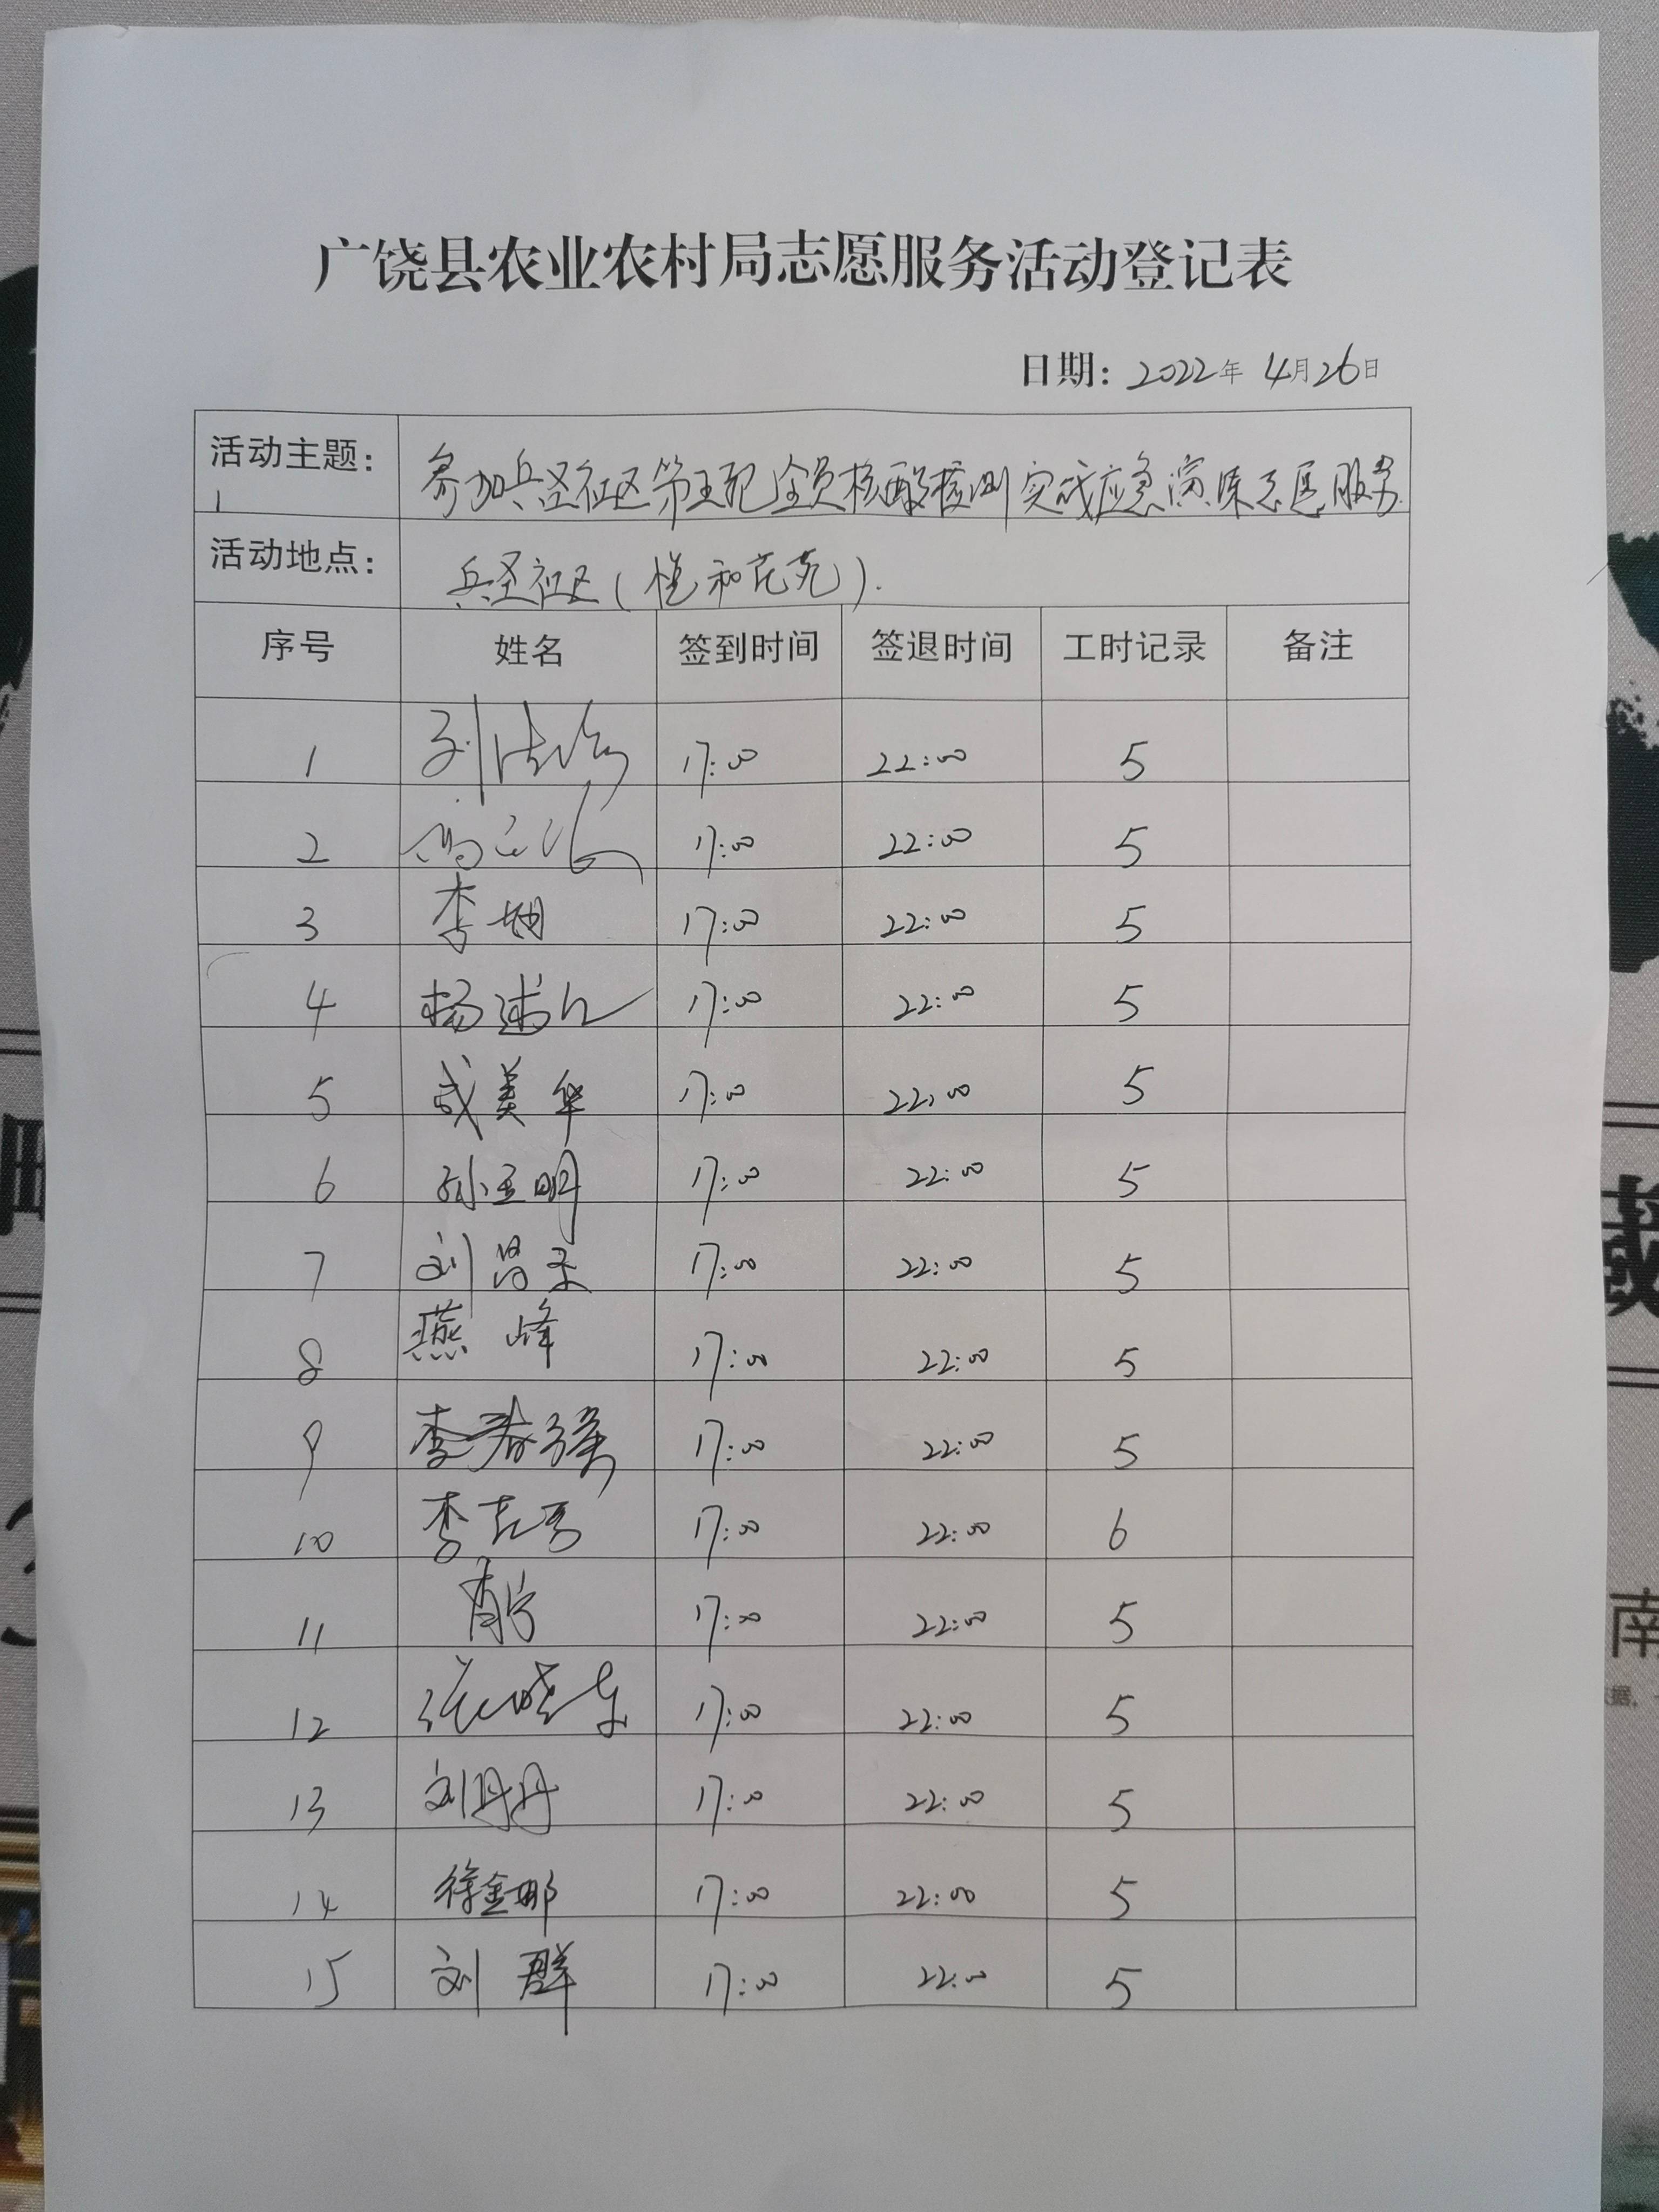 广饶县农业农村局志愿服务活动登记表
日期：2022年 4月26日
活动主题： 参加兵圣社区 全员核酸检测实战应急演练志愿服务
1
活动地点： 兵圣社区（悦和花苑）.
序号 姓名 签到时间 签退时间 工时记录 备注
1 刘 17:00 22:00 5
2 17:00 22:00 5
3 李 17:00 22:00 5
4 杨 17:00 22:00 5
5 成美华 17:00 22:00 5
6 孙玉明 17:00 22:00 5
7 刘 17:00 22:00 5
8 燕峰 17:00 22:00 5
9 李春强 17:00 22:00 5
10 李 17:00 22:00 6
11 17:00 22:00 5
12 张晓东 17:00 22:00 5
13 刘丹丹 17:00 22:00 5
14 徐金娜 17:00 22:00 5
15 刘群 17:00 22:00 5
南